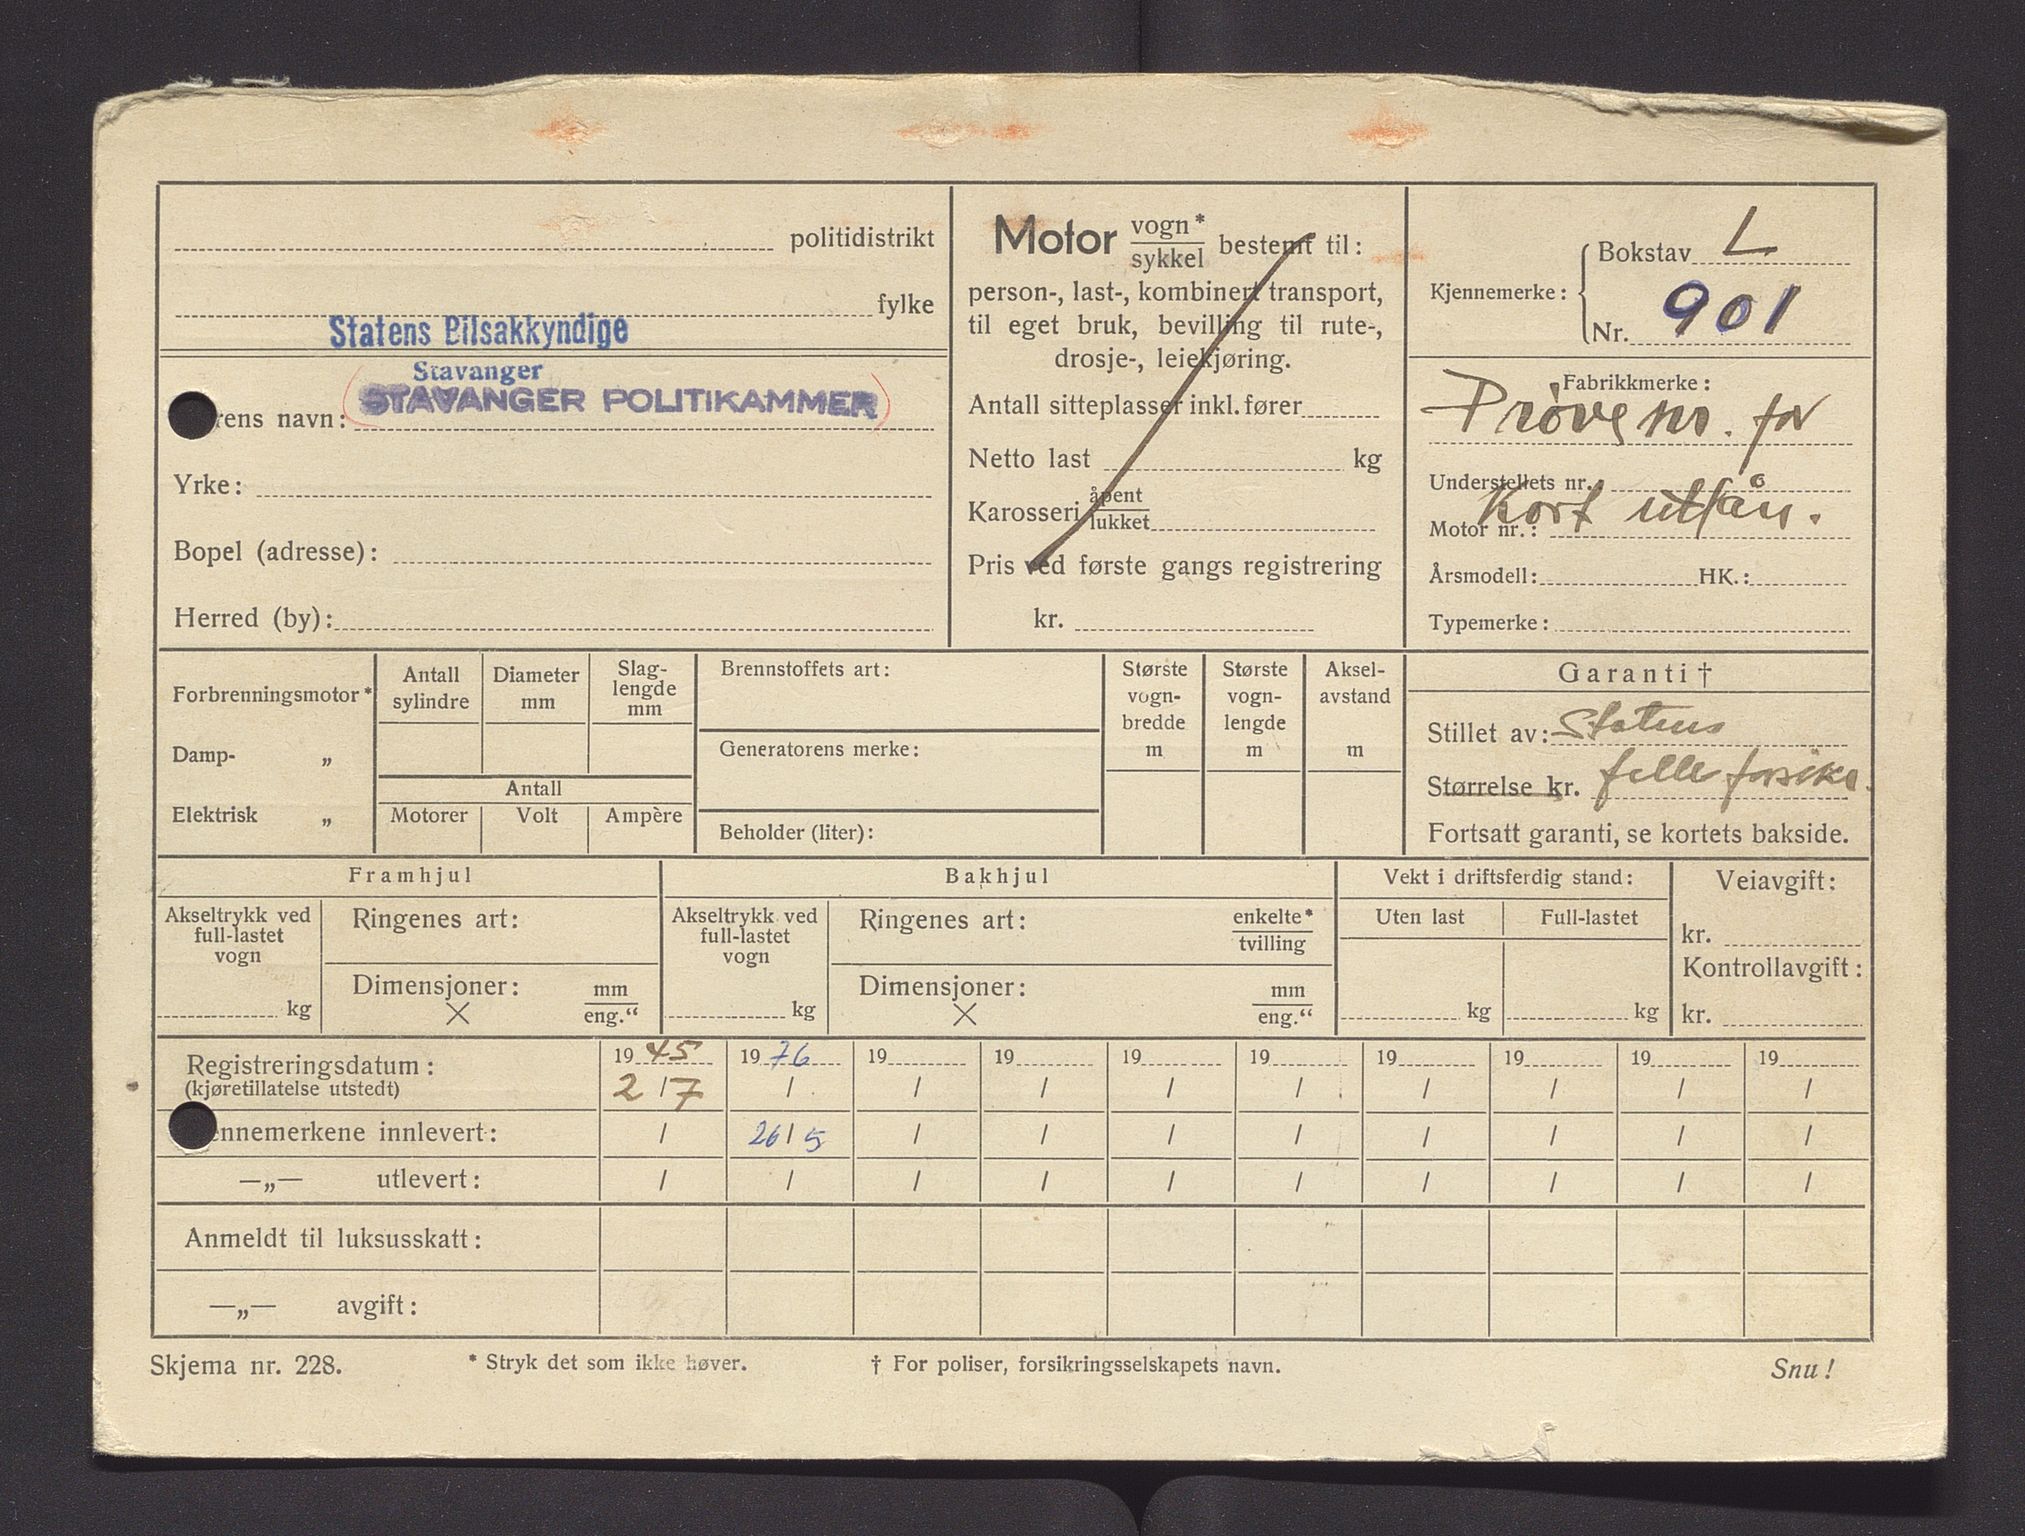 politidistrikt
fylke
Statens Bilsakkyndige
Stavanger
rens navn: (STAVANGER POLITIKAMMER)
Yrke:
Bopel (adresse):
Herred (by):
Motor vogn* / sykkel bestemt til:
person-, last-, kombinert transport,
til eget bruk, bevilling til rute-,
drosje-, leiekjøring.
Antall sitteplasser inkl. fører
Netto last kg
Karosseri åpent / lukket
Pris ved første gangs registrering
kr.
Kjennemerke: Bokstav L
Nr. 901
Fabrikkmerke:
Prøve nr. for
Understellets nr.:
Kort utlån.
Motor nr.:
Årsmodell: HK.:
Typemerke:
Forbrenningsmotor*
Damp- „
Elektrisk „
Antall sylindre
Diameter mm
Slag-
lengde
mm
Antall
Motorer Volt Ampère
Brennstoffets art:
Generatorens merke:
Beholder (liter):
Største
vogn-
bredde
m
Største
vogn-
lengde
m
Aksel-
avstand
m
Garanti †
Stillet av: Statens
Størrelse kr. felle forsikr.
Fortsatt garanti, se kortets bakside.
Framhjul
Akseltrykk ved
full-lastet
vogn
kg
Ringenes art:
Dimensjoner: mm / eng.“
×
Bakhjul
Akseltrykk ved
full-lastet
vogn
kg
Ringenes art: enkelte* / tvilling
Dimensjoner: mm / eng.“
×
Vekt i driftsferdig stand:
Uten last Full-lastet
kg kg
Veiavgift:
kr.
Kontrollavgift:
kr.
Registreringsdatum: 1945 1976 19 19 19 19 19 19 19 19
(kjøretillatelse utstedt) 2/7 / / / / / / / / /
ennemerkene innlevert: / 26/5 / / / / / / / /
—„— utlevert: / / / / / / / / / /
Anmeldt til luksusskatt:
—„— avgift:
Skjema nr. 228. * Stryk det som ikke høver. † For poliser, forsikringsselskapets navn. Snu!